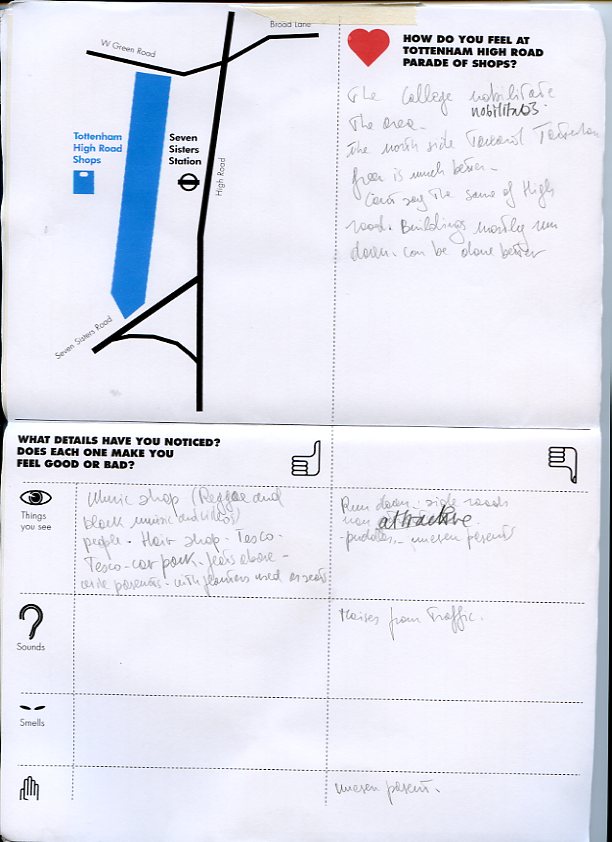 Broad Lane
W Green Road
Tottenham
High Road
Shops
Seven
Sisters
Station
High Road
Seven Sisters Road
HOW DO YOU FEEL AT
TOTTENHAM HIGH ROAD
PARADE OF SHOPS?
The College nobilitate
nobilitates.
The area.
The north side Toward Tottenham
green is much better.
Can't say the same of High
road. Buildings mostly run
down. can be done better
WHAT DETAILS HAVE YOU NOTICED?
DOES EACH ONE MAKE YOU
FEEL GOOD OR BAD?
Things
you see
Music shop (Reggae and
black music and videos)
people. Hair shop. Tesco.
Tesco-car park. flats above -
wide paments - with planters used as seats
Run down. side roads
non attractive.
puddles - uneven paments
Sounds
Noises from Traffic.
Smells
uneven pament.